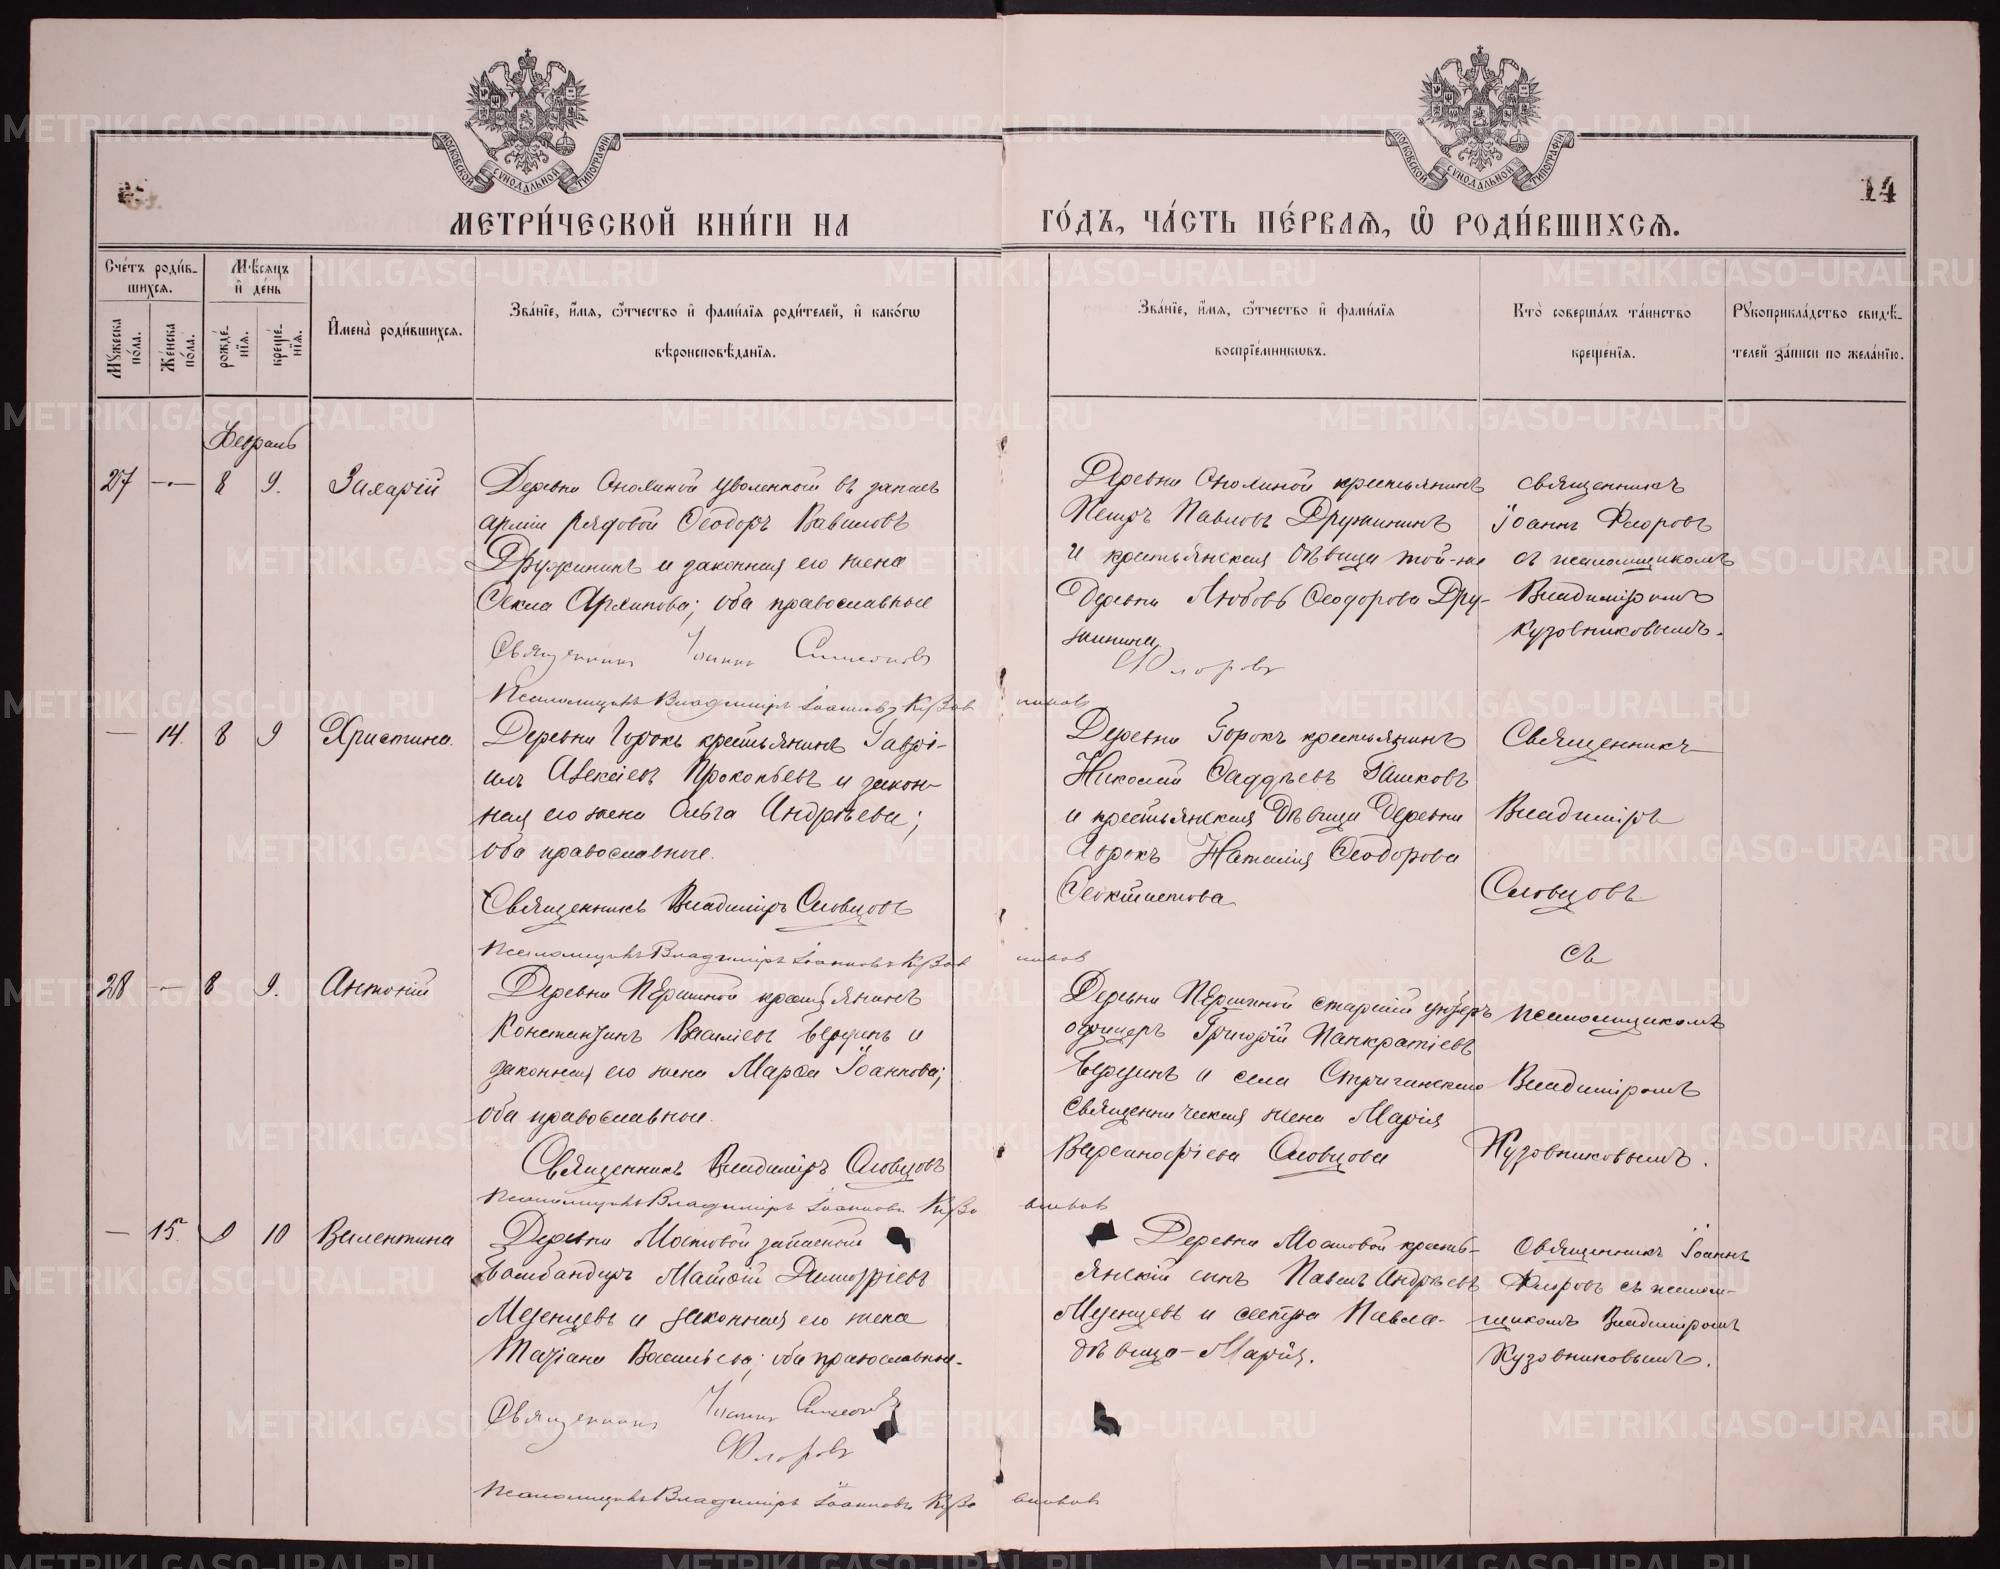 МОСКОВСКОЙ СУНОДАЛЬНОЙ ТИПОГРАФІИ
МОСКОВСКОЙ СУНОДАЛЬНОЙ ТИПОГРАФІИ
14
МЕТРИ́ЧЕСКОЙ КНИ́ГИ НА ГО́ДЪ, ЧА́СТЬ ПЕ́РВАѦ, Ѡ РОДИ́ВШИХСѦ.
Счетъ роди́в-
шихсѧ.
Мꙋжеска по́ла.
Же́нска по́ла.
Мѣсѧцъ
и де́нь
рожде́-
нїѧ.
креще́-
нїѧ.
Имена̀ роди́вшихсѧ.
Зва́нїе, и́мѧ, ѻ́тчество и фами́лїѧ роди́телей, и како́гѡ
вѣроисповѣ́данїѧ.
Зва́нїе, и́мѧ, ѻ́тчество и фами́лїѧ
воспрїе́мникѡвъ.
Кто̀ соверша́лъ та́инство
креще́нїѧ.
Рꙋкоприкла́дство свидѣ́-
телей за́писи по жела́нїю.
Февраль
27 — 8 9. Захарій
Деревни Онохиной уволенной въ запасъ
арміи рядовой Ѳеодоръ Вавиловъ
Дружининъ и законная его жена
Ѳекла; оба православные
Священникъ Іоаннъ Симеоновъ
Флоровъ
Псаломщикъ Владиміръ Іоанновъ Кузовниковъ
Деревни Онохиной крестьянинъ
Петръ Павловъ Дружининъ
и крестьянская дѣвица той-же
деревни Любовь Ѳеодорова Дру-
жинина
Священникъ
Іоаннъ Флоровъ
съ псаломщикомъ
Владиміромъ
Кузовниковымъ.
— 14. 8 9 Христина.
Деревни Горокъ крестьянинъ Гаврі-
илъ Алексіевъ Прокопьевъ и закон-
ная его жена Ольга Андреева;
оба православные.
Священникъ Владиміръ Словцовъ
Псаломщикъ Владиміръ Іоанновъ Кузовниковъ
Деревни Горокъ крестьянинъ
Николай Ѳаддѣевъ
и крестьянская дѣвица деревни
Горокъ Наталія Ѳеодорова
Ѳеоктистова
Священникъ
Владиміръ
Словцовъ
съ
псаломщикомъ
Владиміромъ
Кузовниковымъ.
28 — 8 9. Антоній
Деревни Першиной крестьянинъ
Константинъ Василіевъ Бердинъ и
законная его жена Марѳа Іоаннова;
оба православные.
Священникъ Владиміръ Словцовъ
Псаломщикъ Владиміръ Іоанновъ Кузовниковъ
Деревни Першиной старшій унтеръ
офицеръ Григорій Панкратіевъ
Бердинъ и села Стриганскаго
священническая жена Марія
Варсанофіева Словцова
— 15. 9 10 Валентина
Деревни Мостовой запасной
бомбандиръ Матѳій Димитріевъ
Мезенцевъ и законная его жена
Татіана Васильева; оба православные.
Священникъ Іоаннъ Симеоновъ
Флоровъ
Псаломщикъ Владиміръ Іоанновъ Кузовниковъ
Деревни Мостовой кресть-
янскій сынъ Павелъ Андреевъ
Мезенцевъ и сестра Павла-
дѣвица-Марія.
Священникъ Іоаннъ
Флоровъ съ псалом-
щикомъ Владиміромъ
Кузовниковымъ.
METRIKI.GASO-URAL.RU